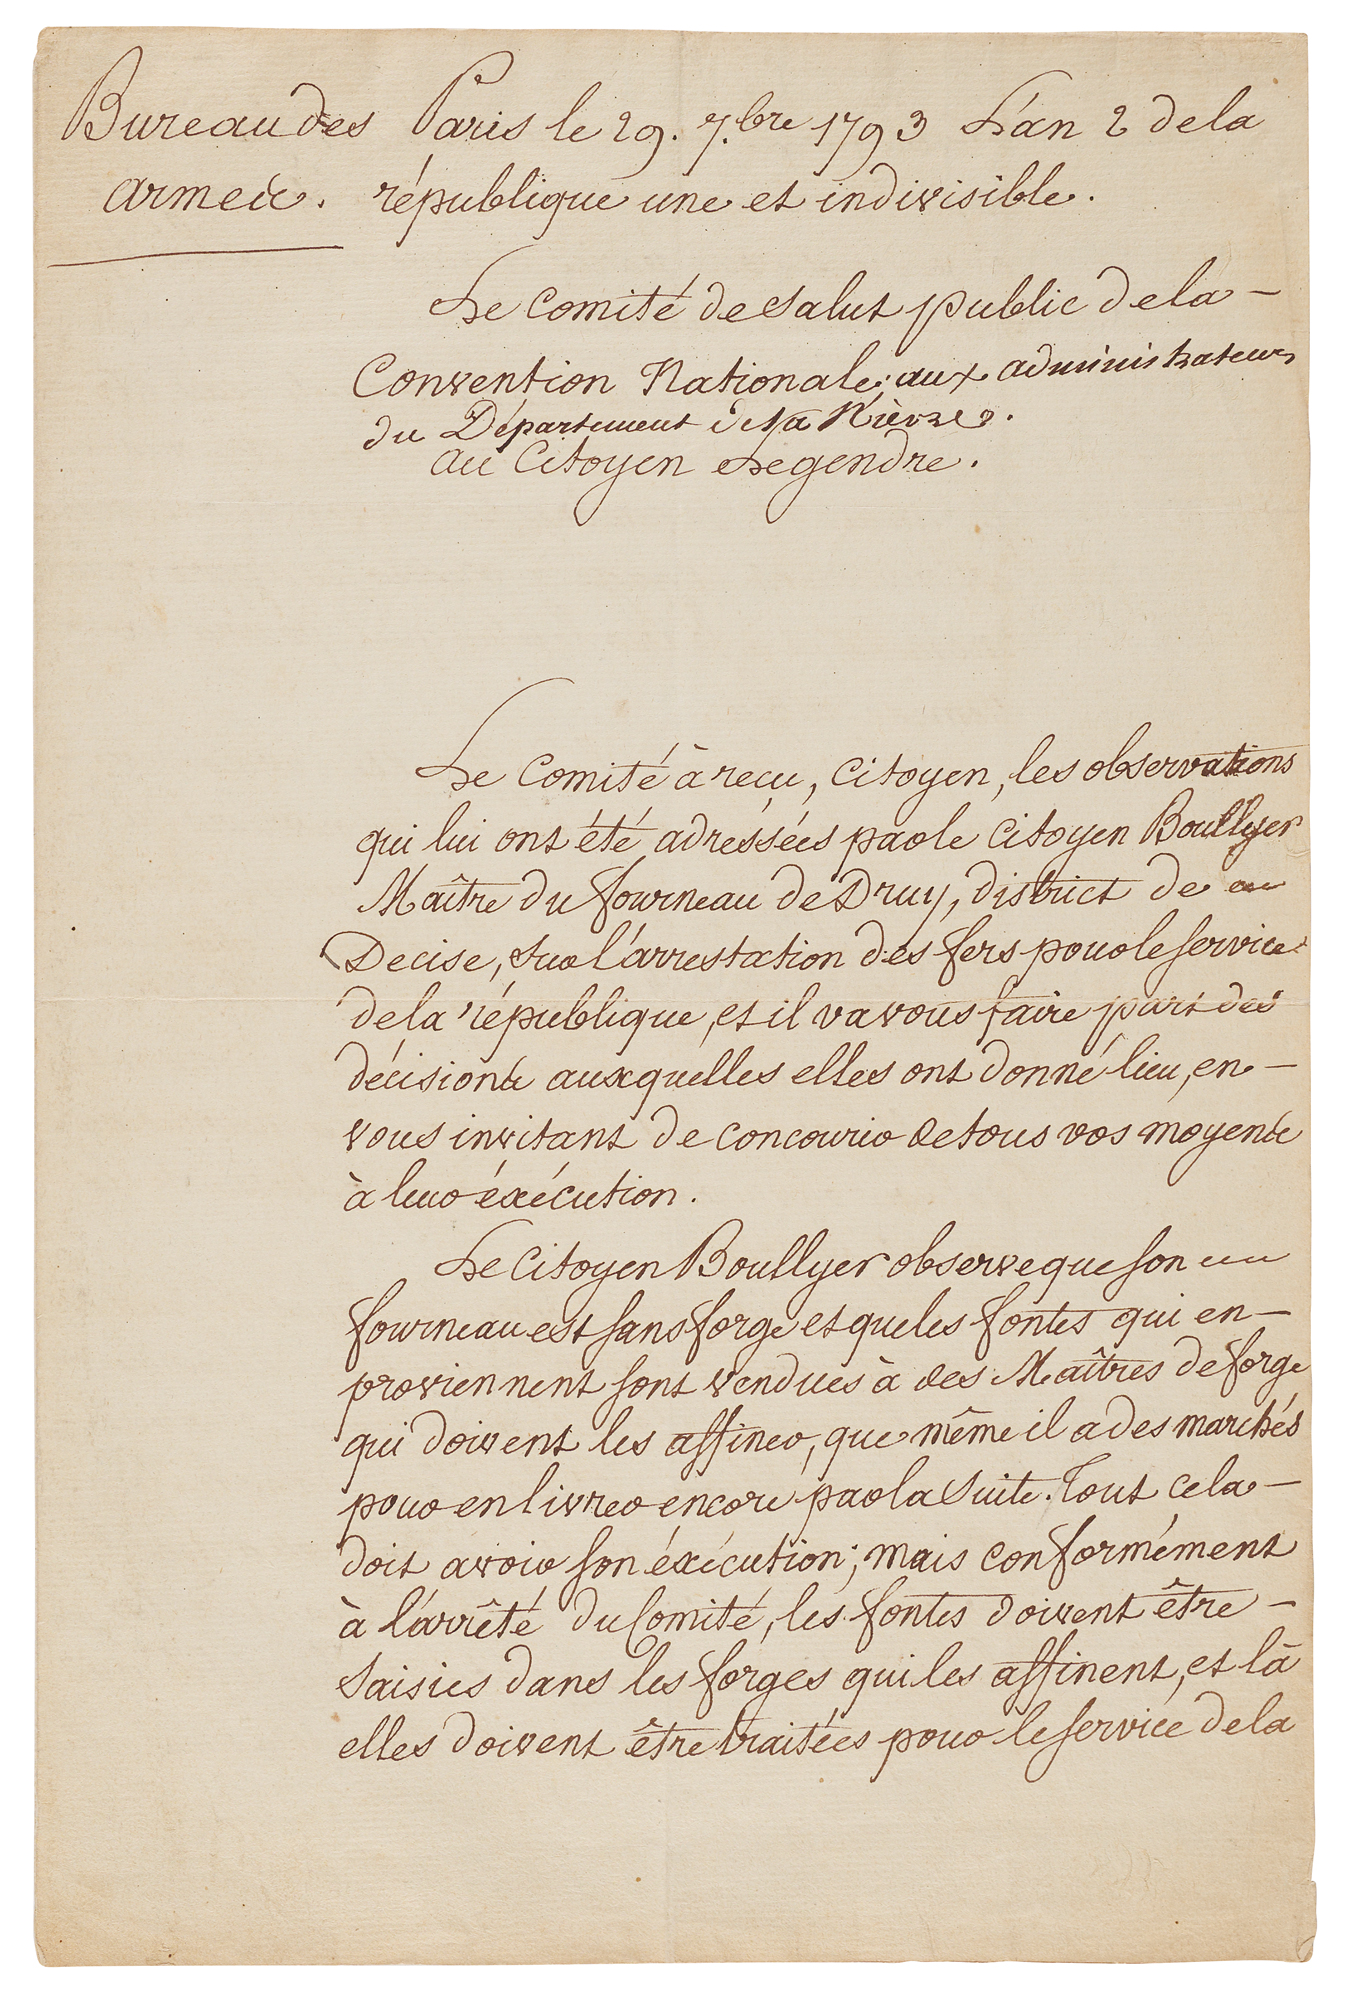 Bureau des Paris le 29. 7.bre 1793 L'an 2 de la
armées. république une et indivisible.
Le Comité de Salut public de la
Convention Nationale, aux administrateurs
du Département de la Nièvre.
au Citoyen Legendre.
Le Comité à reçu, Citoyen, les observations
qui lui ont été adréssées par le Citoyen Boullyer
Maître du fourneau de Druy, district de
Decise, sur l'arrestation des fers pour le service
de la république, et il va vous faire part des
décisions auxquelles elles ont donné lieu, en
vous invitant de concourir de tous vos moyens
à leur éxécution.
Le Citoyen Boullyer observe que son
fourneau est sans forge et que les fontes qui en
proviennent sont vendues à des Maîtres de forge
qui doivent les affiner, que même il a des marchés
pour en livrer encore par la suite. Tout cela
doit avoir son éxécution; mais conformément
à l'arrêté du Comité, les fontes doivent être
saisies dans les forges qui les affinent, et là
elles doivent être traitées pour le service de la